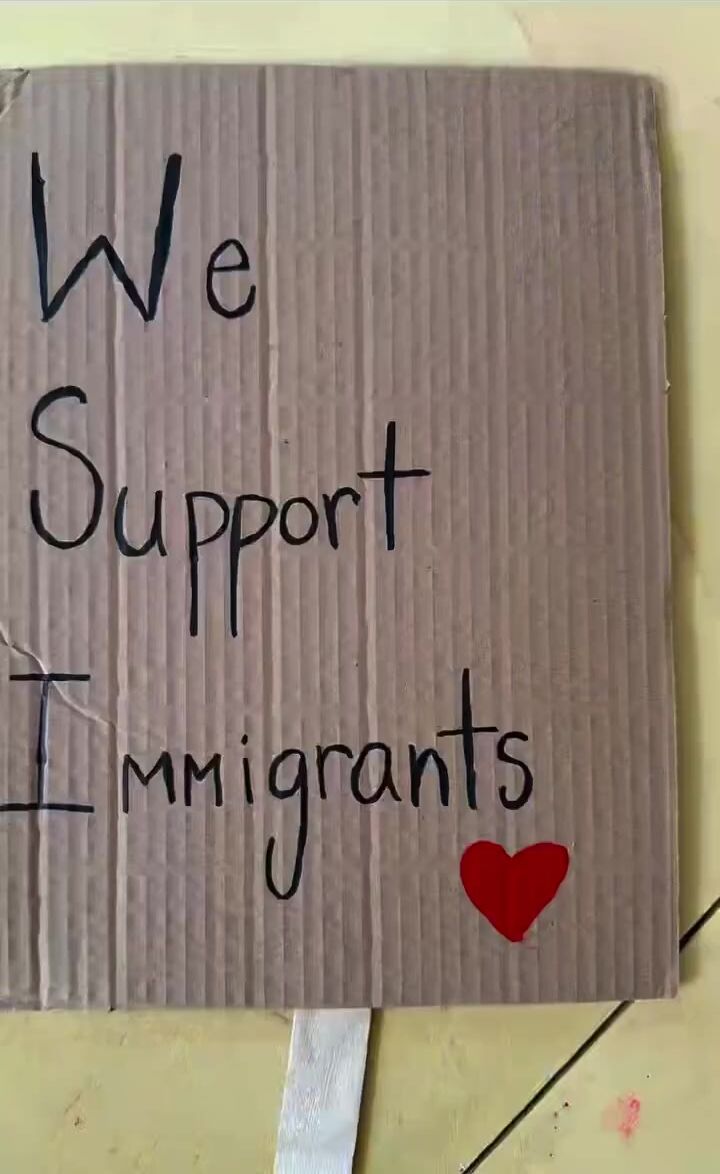 We
Support
Immigrants